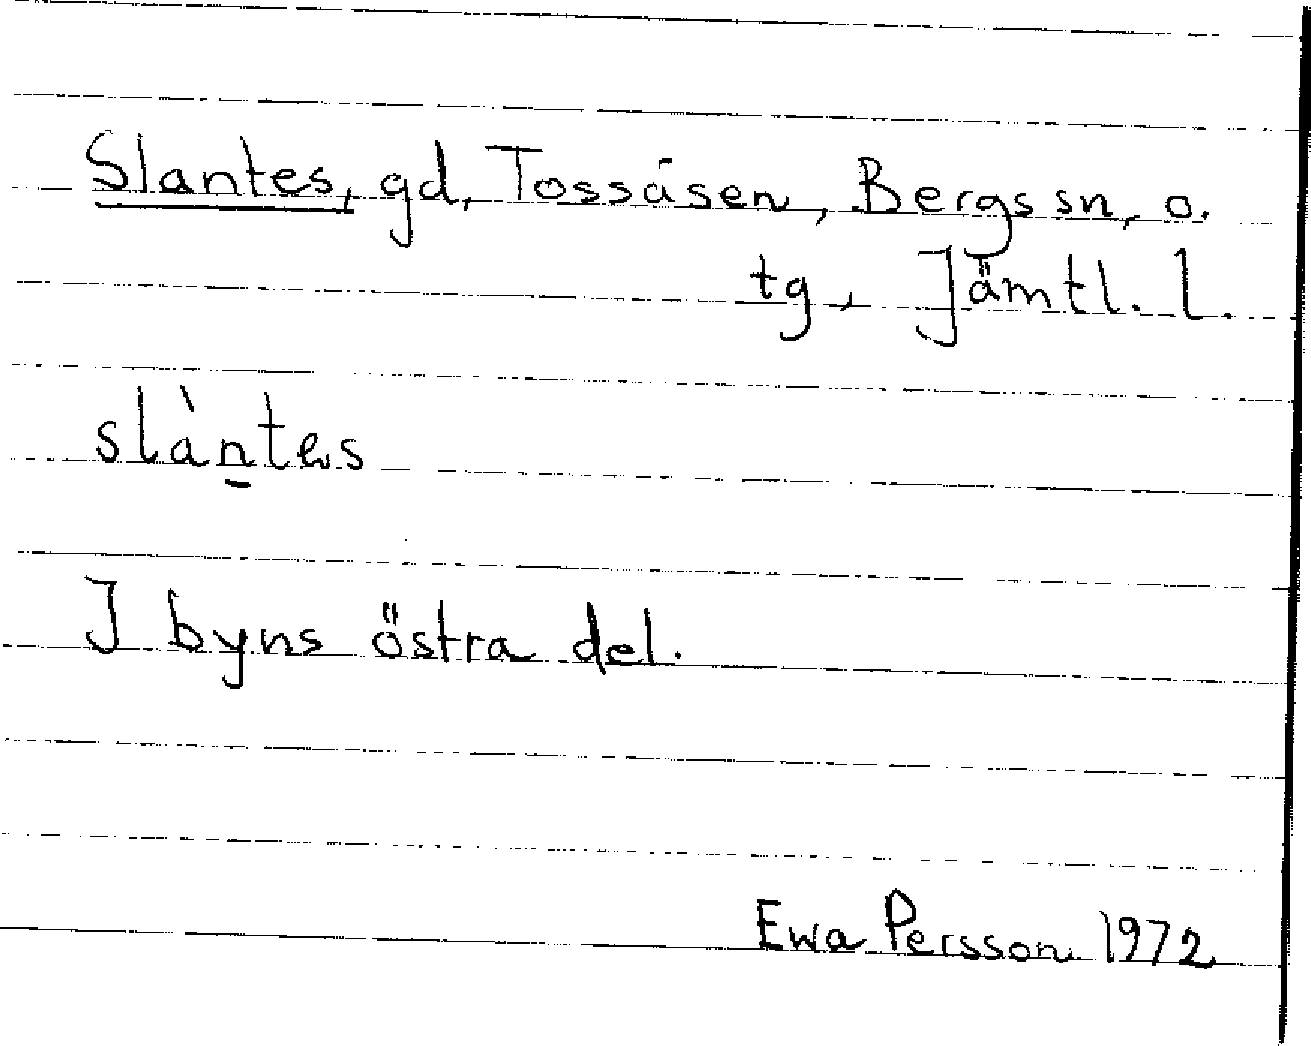 Slantes, gd, Tossåsen, Bergs sn, o.
tg, Jämtl. l.
slàn̠tes
I byns östra del.
Ewa Persson 1972